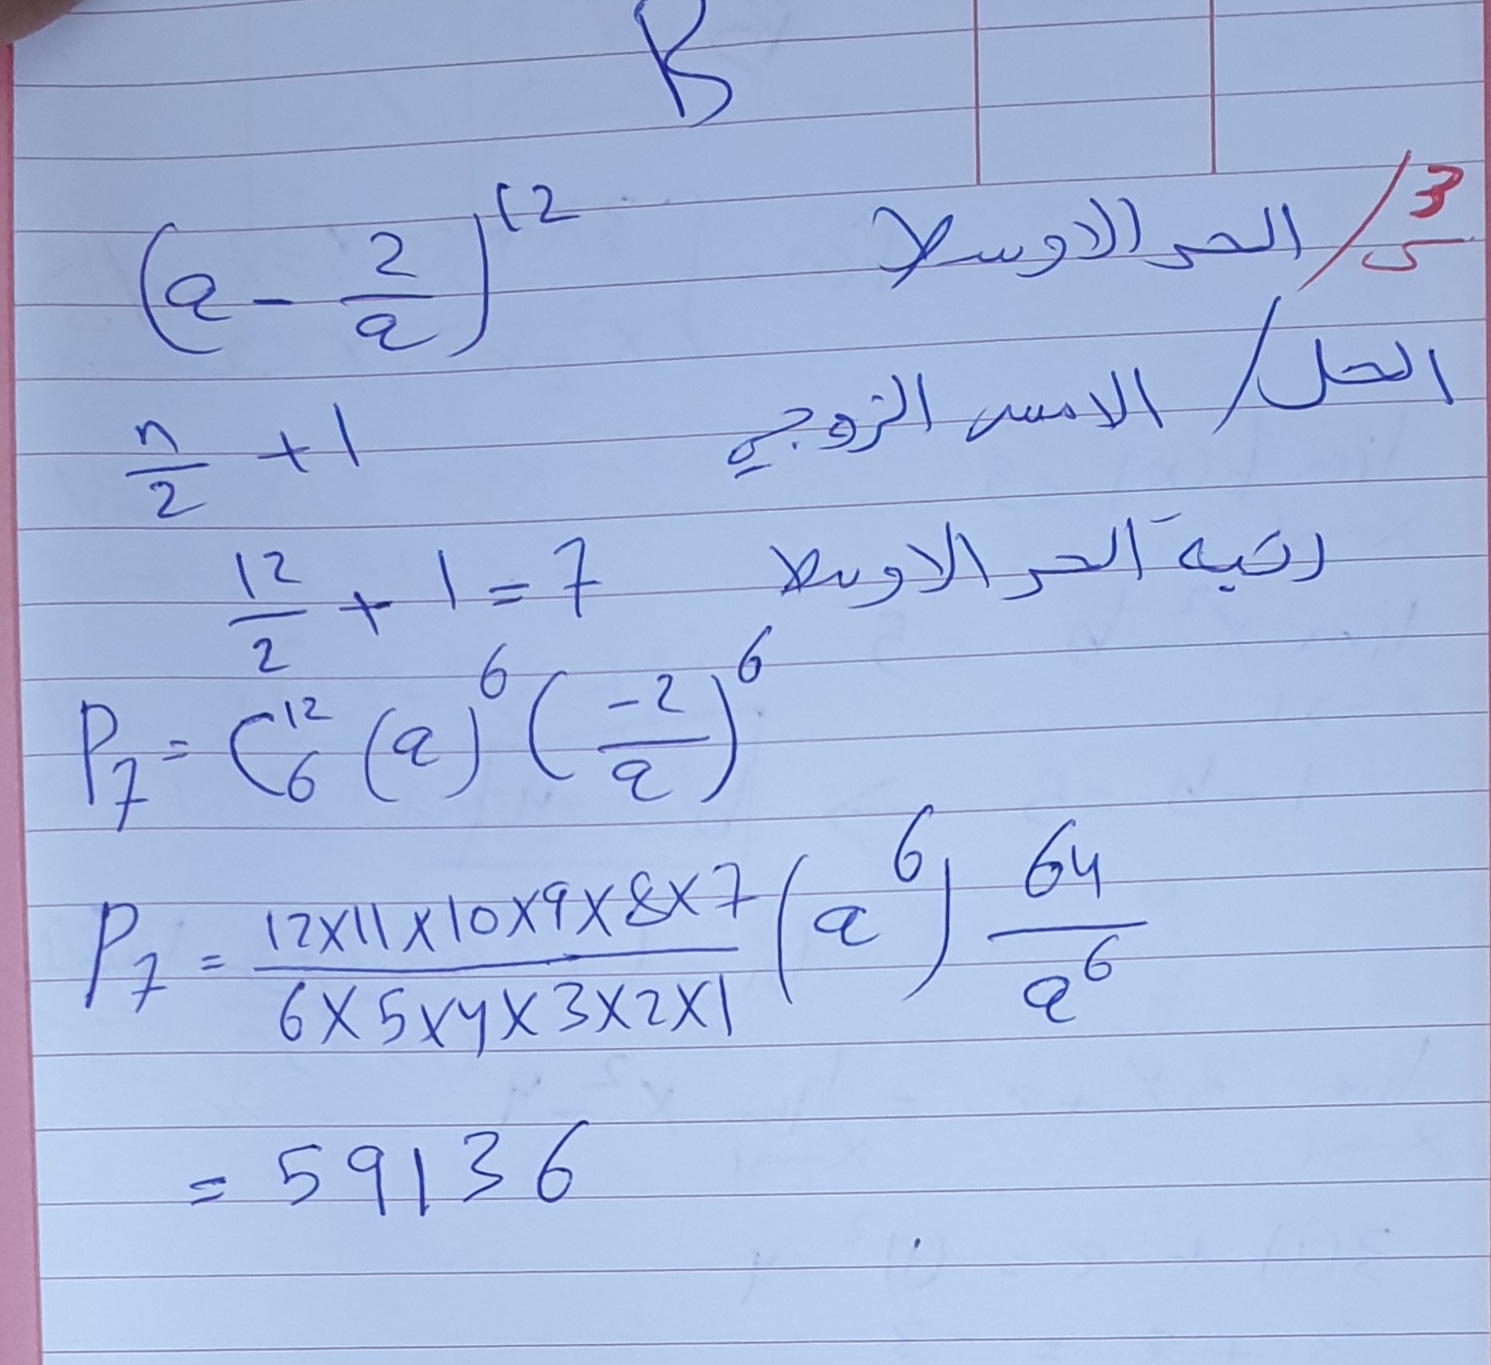 B
س3/ الحد الاوسط (a - 2/a)^12
الحل/ الاس الزوجي n/2 + 1
رتبة الحد الاوسط 12/2 + 1 = 7
P₇ = C¹²₆ (a)^6 (-2/a)^6
P₇ = 12x11x10x9x8x7 / 6x5x4x3x2x1 (a^6) 64/a^6
= 59136